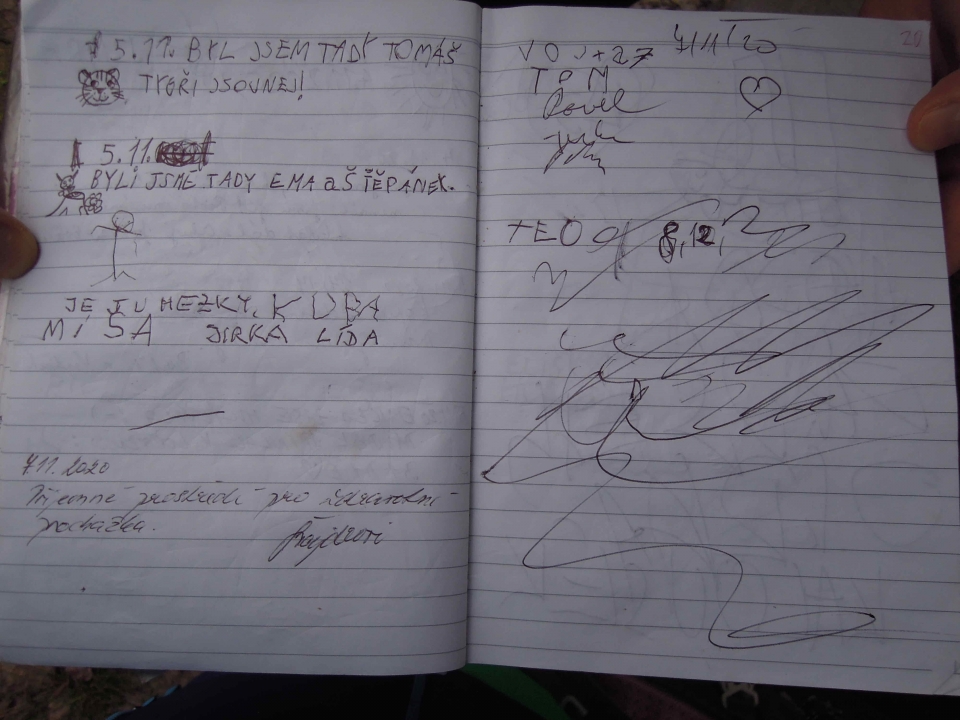 5.11. BYL JSEM TADY TOMÁŠ
TYGŘI JSOU NEJ!
5.11.
BYLI JSME TADY EMA a ŠTĚPÁNEK.
JE TU HEZKY. KUBA
MÍŠA JIRKA LÍDA
7.11. 2020
Příjemné prostředí pro zdravotní
procházku.
VOJ+27 7/11/20
TOM
Pavel
TEO 8,12,
28